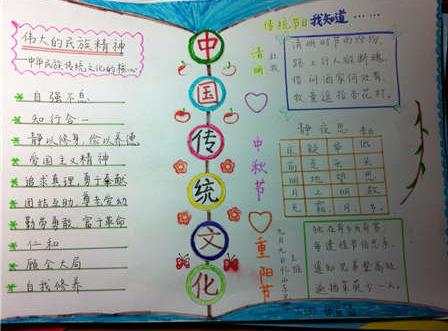 伟大的民族精神
——中华民族传统文化的核心
自强不息
知行合一
静以修身，俭以养德
爱国主义精神
追求真理，勇于奉献
团结互助，尊老爱幼
勤劳勇敢，富于革命
仁和
顾全大局
自我修养
中国传统文化
传统节日我知道……
清明
杜牧
清明时节雨纷纷，
路上行人欲断魂。
借问酒家何处有，
牧童遥指杏花村。
中秋节
静夜思
李白
床疑举低
前是头头
明地望思
月上明故
光霜月乡
重阳节
九月九日忆山东兄弟
王维
独在异乡为异客，
每逢佳节倍思亲。
遥知兄弟登高处，
遍插茱萸少一人。